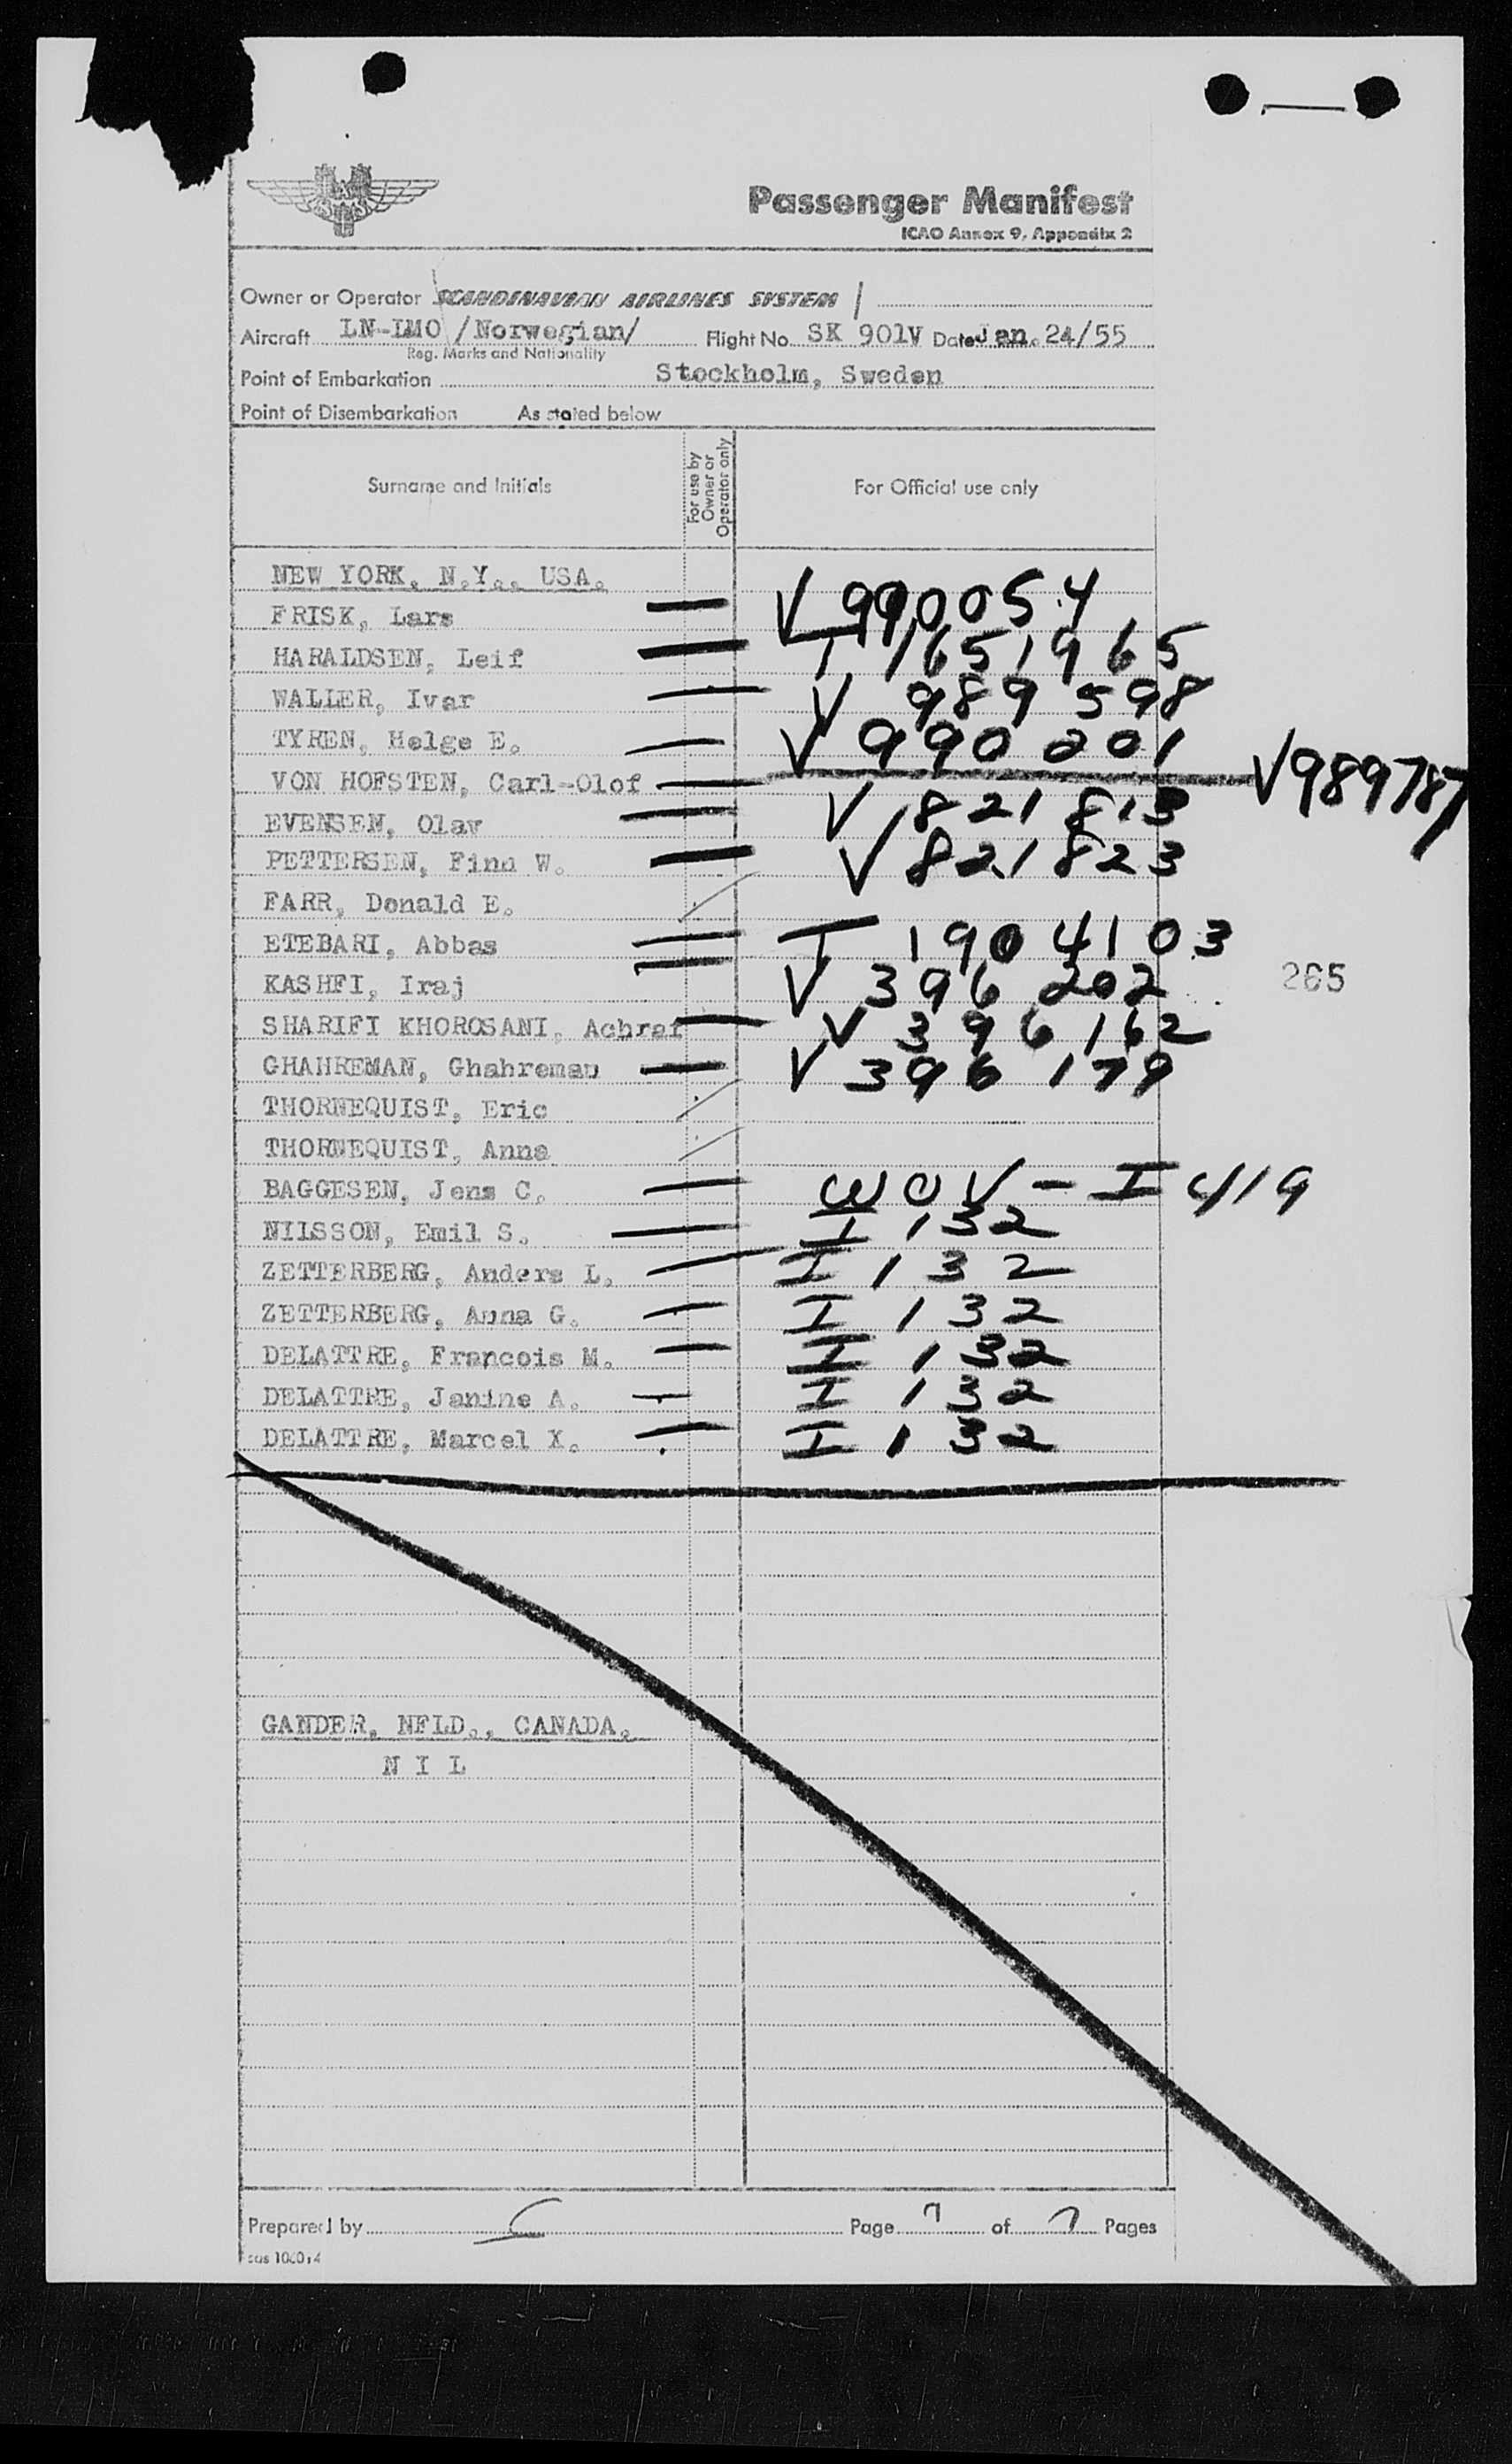 Passenger Manifest
ICAO Annex 9, Appendix 2
Owner or Operator SCANDINAVIAN AIRLINES SYSTEM
Aircraft LN-LMO /Norwegian/ Flight No. SK 901V Date Jan. 24/55
Reg. Marks and Nationality
Point of Embarkation Stockholm, Sweden
Point of Disembarkation As stated below
Surname and Initials For use by Owner or Operator only For Official use only
NEW YORK, N.Y., USA.
FRISK, Lars — V 990054
HARALDSEN, Leif — I 1651965
WALLER, Ivar — V 989 598
TYREN, Helge E. — V 990 201
VON HOFSTEN, Carl-Olof — V989787
EVENSEN, Olav — V 821 813
PETTERSEN, Finn W. — V 821 823
FARR, Donald E. /
ETEBARI, Abbas — T 1904103
KASHFI, Iraj — V 396 202
265
SHARIFI KHOROSANI, Achraf — V 396 162
GHAHREMAN, Ghahreman — V 396 179
THORNEQUIST, Eric /
THORNEQUIST, Anna /
BAGGESEN, Jens C. — WOV - I 419
NILSSON, Emil S. — I 132
ZETTERBERG, Anders L. — I 132
ZETTERBERG, Anna G. — I 132
DELATTRE, Francois M. — I 132
DELATTRE, Janine A. — I 132
DELATTRE, Marcel X. — I 132
GANDER, NFLD., CANADA.
N I L
Prepared by Page 7 of 7 Pages